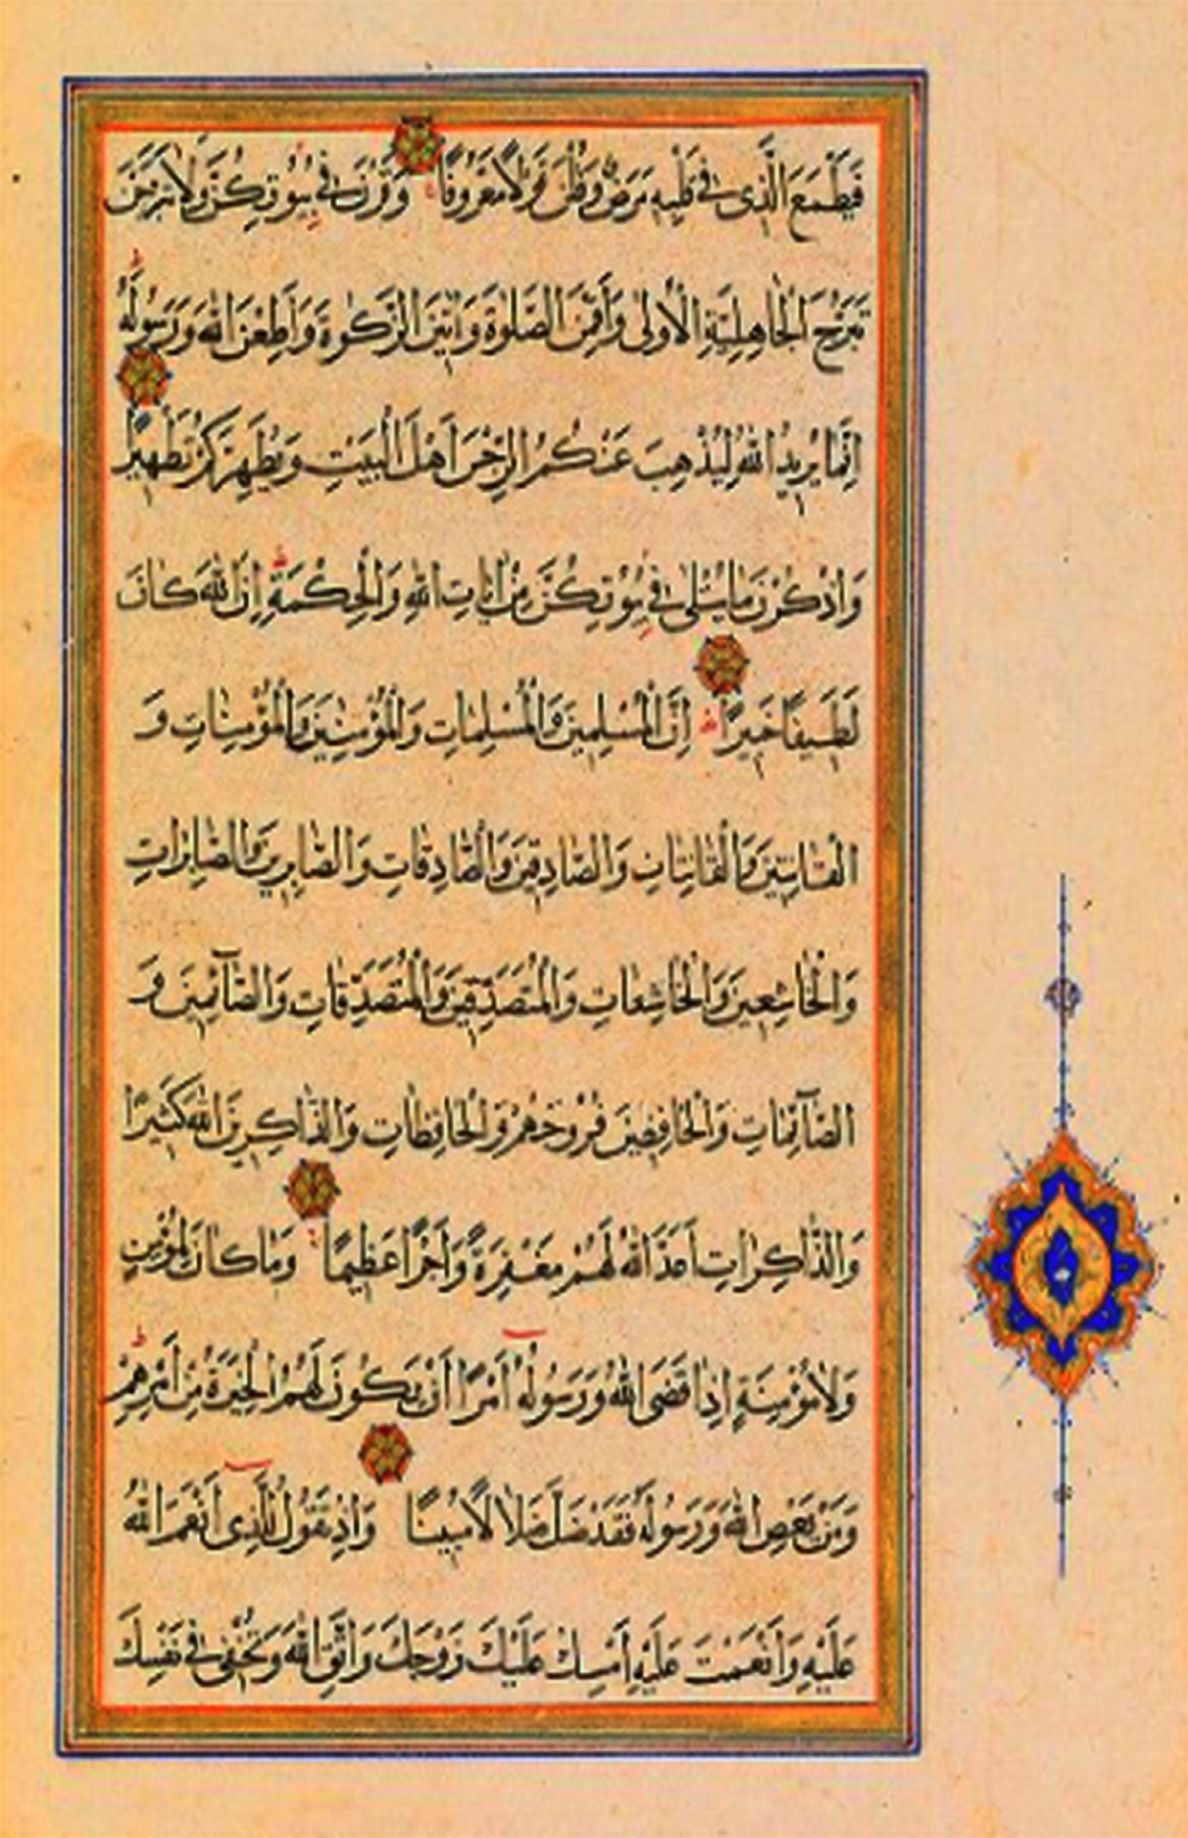 فَيَطْمَعَ الَّذِى فِى قَلْبِهِ مَرَضٌ وَقُلْنَ قَوْلًا مَعْرُوفًا وَقَرْنَ فِى بُيُوتِكُنَّ وَلَا تَبَرَّجْنَ
تَبَرُّجَ الْجَاهِلِيَّةِ الْأُولٰى وَأَقِمْنَ الصَّلٰوةَ وَاٰتِينَ الزَّكٰوةَ وَأَطِعْنَ اللّٰهَ وَرَسُولَهُ
اِنَّمَا يُرِيدُ اللّٰهُ لِيُذْهِبَ عَنْكُمُ الرِّجْسَ أَهْلَ الْبَيْتِ وَيُطَهِّرَكُمْ تَطْهِيرًا
وَاذْكُرْنَ مَا يُتْلٰى فِى بُيُوتِكُنَّ مِنْ اٰيَاتِ اللّٰهِ وَالْحِكْمَةِ اِنَّ اللّٰهَ كَانَ
لَطِيفًا خَبِيرًا اِنَّ الْمُسْلِمِينَ وَالْمُسْلِمَاتِ وَالْمُؤْمِنِينَ وَالْمُؤْمِنَاتِ وَ
الْقَانِتِينَ وَالْقَانِتَاتِ وَالصَّادِقِينَ وَالصَّادِقَاتِ وَالصَّابِرِينَ وَالصَّابِرَاتِ
وَالْخَاشِعِينَ وَالْخَاشِعَاتِ وَالْمُتَصَدِّقِينَ وَالْمُتَصَدِّقَاتِ وَالصَّآئِمِينَ وَ
الصَّآئِمَاتِ وَالْحَافِظِينَ فُرُوجَهُمْ وَالْحَافِظَاتِ وَالذَّاكِرِينَ اللّٰهَ كَثِيرًا
وَالذَّاكِرَاتِ أَعَدَّ اللّٰهُ لَهُمْ مَغْفِرَةً وَأَجْرًا عَظِيمًا وَمَا كَانَ لِمُؤْمِنٍ
وَلَا مُؤْمِنَةٍ اِذَا قَضَى اللّٰهُ وَرَسُولُهُٓ أَمْرًا أَنْ يَكُونَ لَهُمُ الْخِيَرَةُ مِنْ أَمْرِهِمْ
وَمَنْ يَعْصِ اللّٰهَ وَرَسُولَهُ فَقَدْ ضَلَّ ضَلَالًا مُبِينًا وَاِذْ تَقُولُ لِلَّذِىٓ أَنْعَمَ اللّٰهُ
عَلَيْهِ وَأَنْعَمْتَ عَلَيْهِ أَمْسِكْ عَلَيْكَ زَوْجَكَ وَاتَّقِ اللّٰهَ وَتُخْفِى فِى نَفْسِكَ